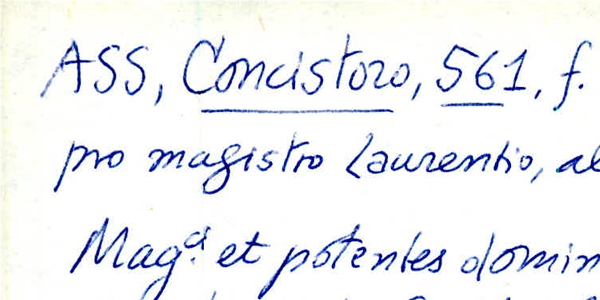 ASS, Concistoro, 561, f.
pro magistro Laurentio, al
Mag.ci et potentes domin